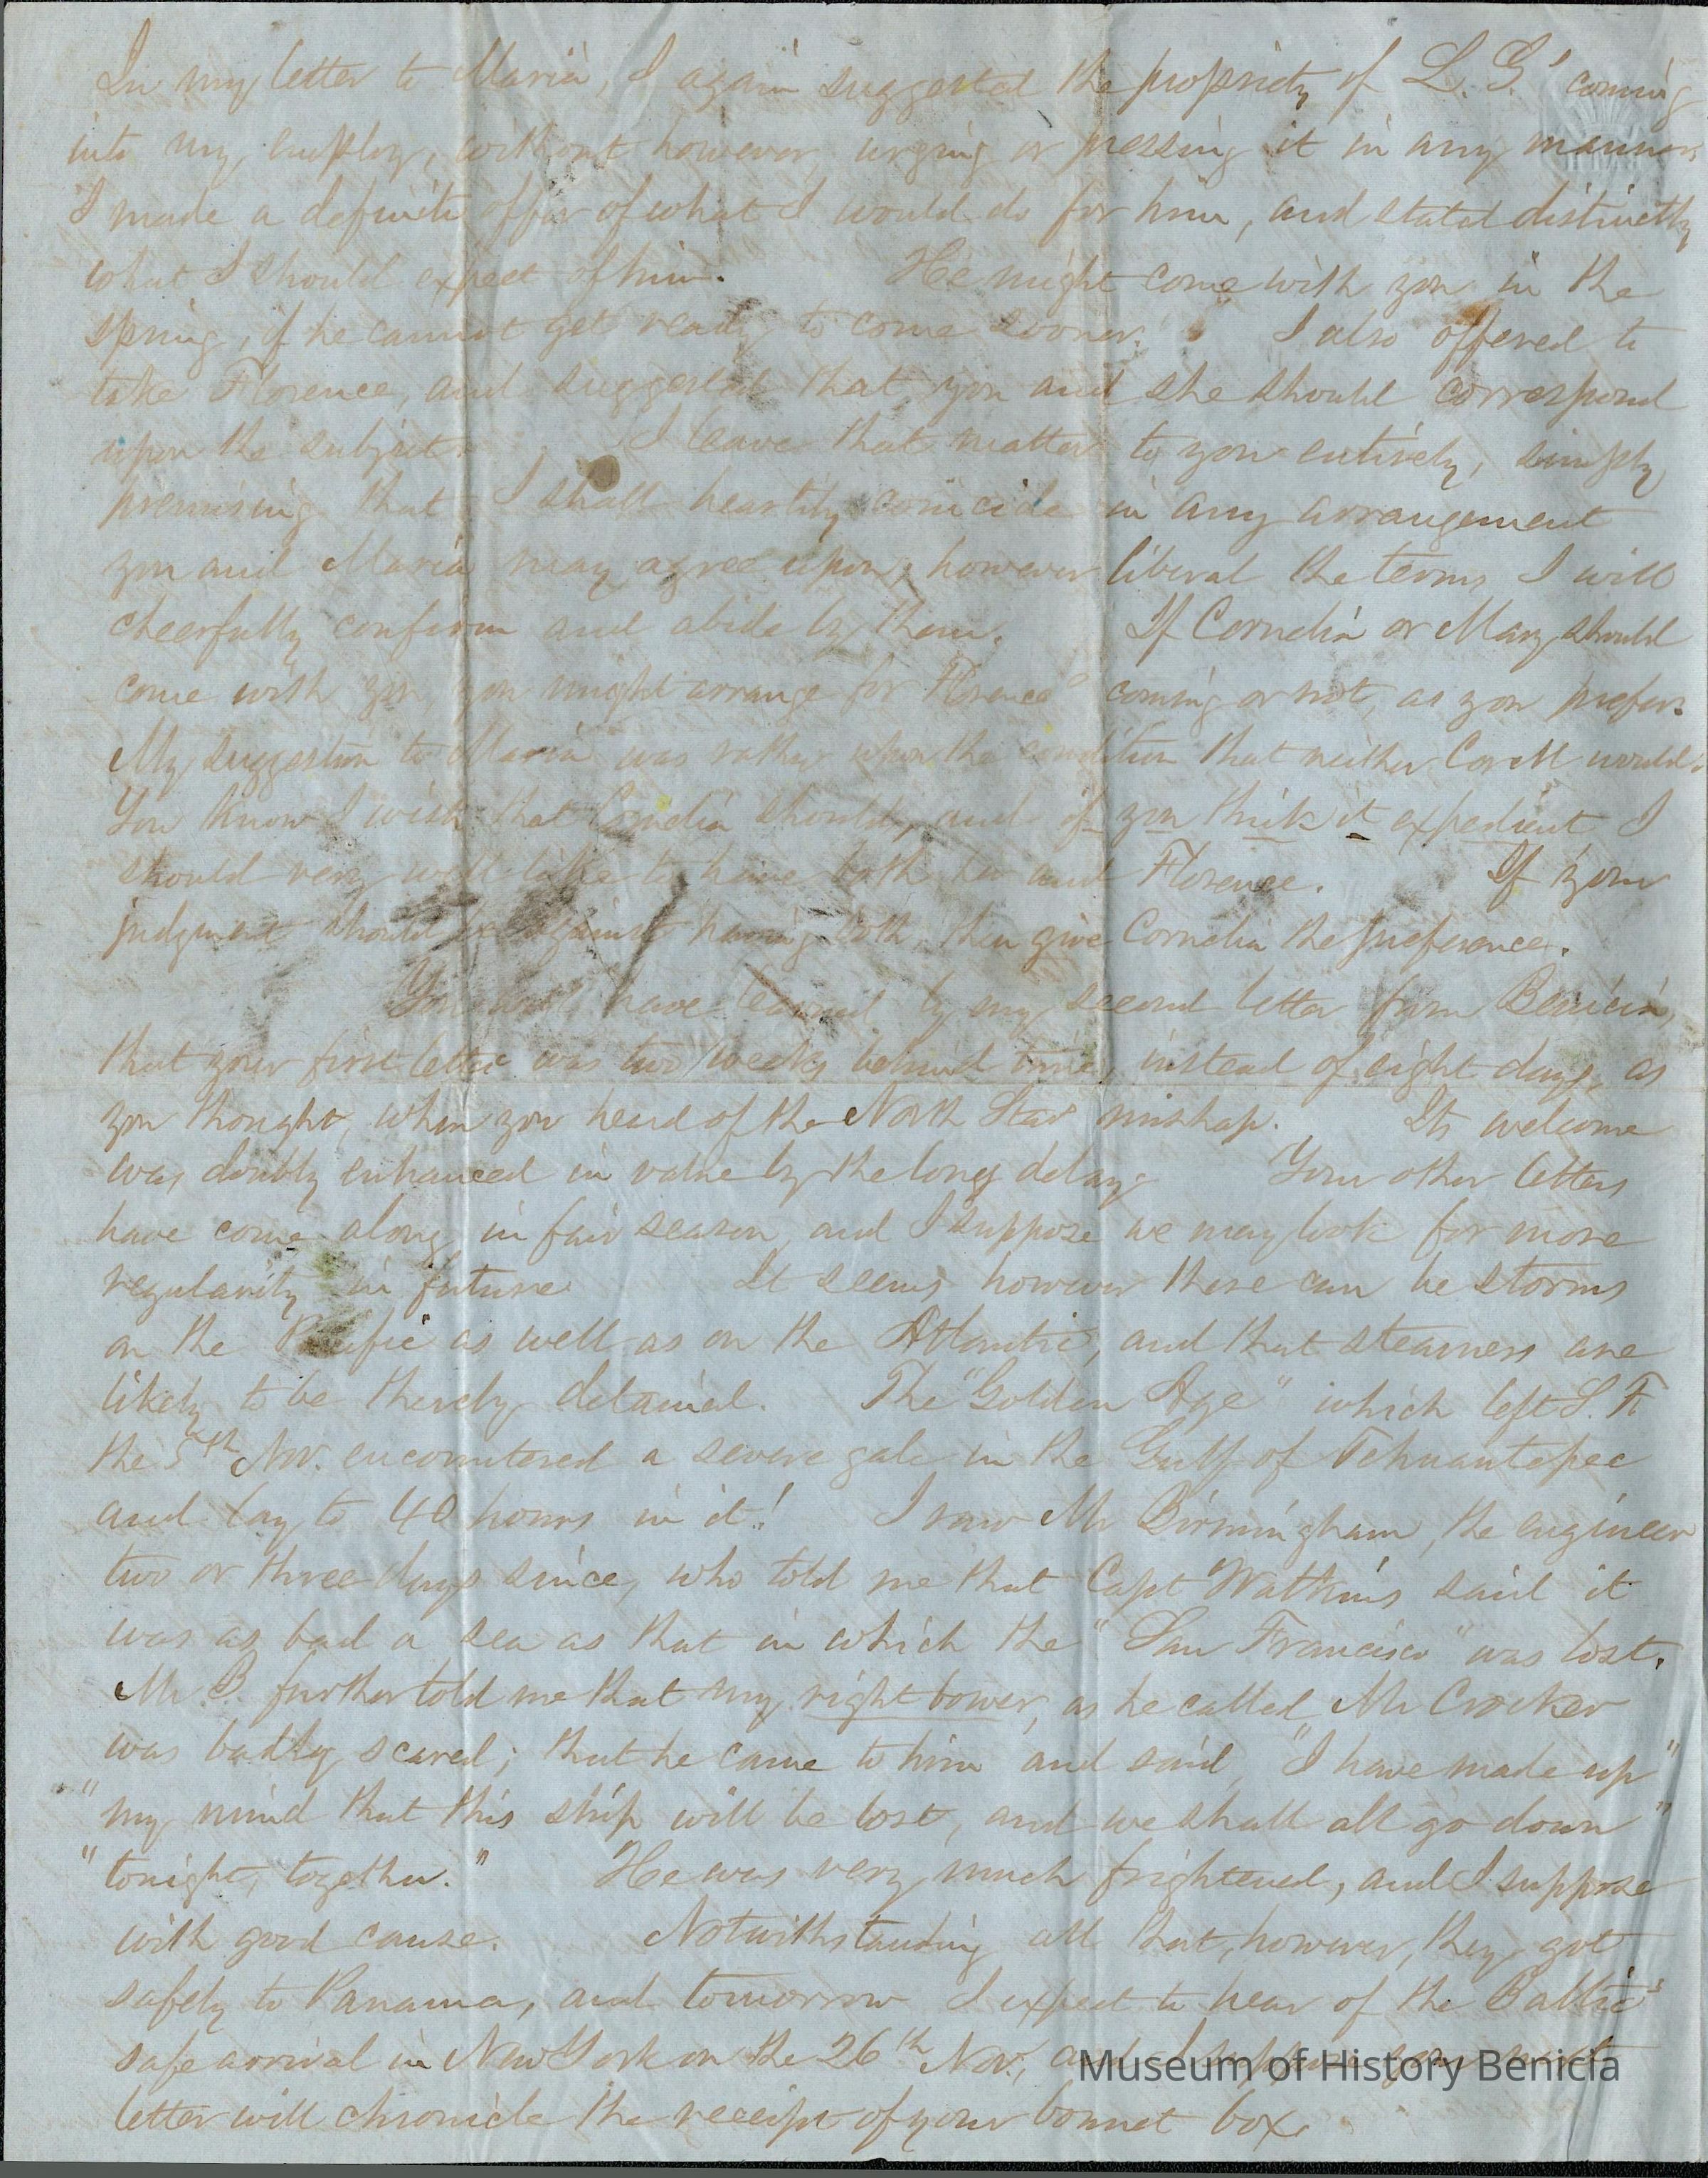 In my letter to Maria, I again suggested the propriety of L. G.' coming
into my employ, without however, urging or pressing it in any manner.
I made a definite offer of what I would do for him, and stated distinctly
what I should expect of him. He might come with you in the
spring, if he cannot get ready to come sooner. I also offered to
take Florence, and suggested that you and she should correspond
upon the subject. I leave that matter to you entirely, simply
premising that I shall heartily coincide in any arrangement
you and Maria may agree upon, however liberal the terms I will
cheerfully confirm and abide by them. If Cornelia or Mary should
come with you, you might arrange for Florence' coming or not, as you prefer.
My suggestion to Maria was rather upon the condition that neither C or M would.
You know I wish that Cornelia should, and if you think it expedient I
should very well like to have both her and Florence. If your
judgment should be against having both, then give Cornelia the preference.
You will have learned by my second letter from Benicia,
that your first letter was two weeks behind time, instead of eight days, as
you thought, when you heard of the North Star mishap. Its welcome
was doubly enhanced in value by the long delay. Your other letters
have come along in fair season, and I suppose we may look for more
regularity in future. It seems however there can be storms
on the Pacific as well as on the Atlantic, and that steamers are
likely to be thereby detained. The "Golden Age" which left S. F.
the 5th Nov. encountered a severe gale in the Gulf of Tehuantepec
and lay to 40 hours in it! I saw Mr Birmingham, the engineer
two or three days since, who told me that Capt Watkins said it
was as bad a sea as that in which the "San Francisco" was lost.
Mr B. further told me that my right bower, as he called Mr Crocker
was badly scared; that he came to him and said "I have made up"
"my mind that this ship will be lost, and we shall all go down"
"tonight, together." He was very much frightened, and I suppose
with good cause. Notwithstanding all that, however, they got
safely to Panama, and tomorrow I expect to hear of the Baltic's
safe arrival in New York on the 26th Nov., and I suppose your next
letter will chronicle the receipt of your bonnet box.
Museum of History Benicia